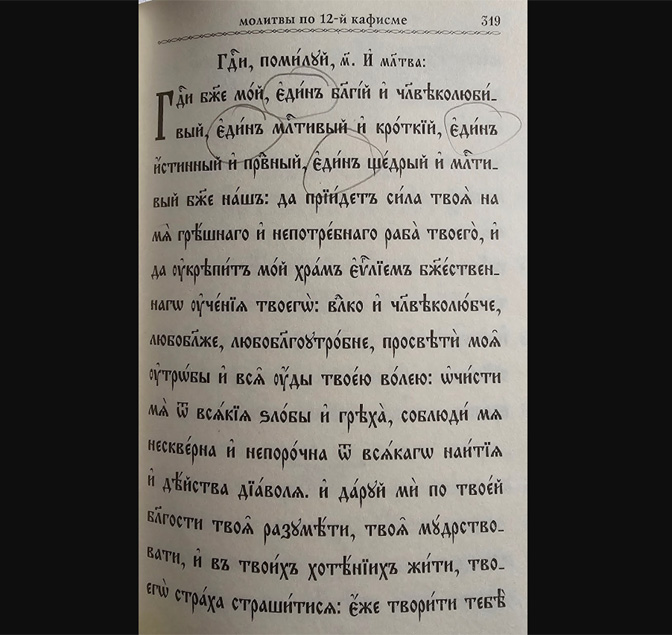 молитвы по 12-й кафисме 319
Гдⷭ҇и, поми́лꙋй, м҃. И҆ мл҃тва:
Гдⷭ҇и бж҃е мо́й, є҆ди́нъ бл҃гі́й и҆ чл҃вѣколюби-
вый, є҆ди́нъ млⷭ҇тивый и҆ кро́ткїй, є҆ди́нъ
и҆́стинный и҆ првⷣный, є҆ди́нъ ще́дрый и҆ млⷭ҇ти-
вый бж҃е на́шъ: да прїи́детъ си́ла твоѧ̀ на
мѧ̀ грѣ́шнаго и҆ непотре́бнаго раба̀ твоего̀, и҆
да ᲂу҆крѣпи́тъ мо́й хра́мъ є҆ѵⷢ҇лїемъ бж҃е́ствен-
нагѡ ᲂу҆че́нїѧ твоегѡ̀: влⷣко и҆ чл҃вѣколю́бче,
любобл҃же, любобл҃гоꙋтро́бне, просвѣтѝ моѧ̑
ᲂу҆трѡ́бы и҆ всѧ̑ ᲂу҆́ды твое́ю во́лею: ѡ҆чи́сти
мѧ̀ ѿ всѧ́кїѧ ѕло́бы и҆ грѣха̀, соблюди́ мѧ
нескве́рна и҆ непоро́чна ѿ всѧ́кагѡ наи́тїѧ
и҆ дѣ́йства дїа́волѧ. и҆ да́рꙋй мѝ по твое́й
бл҃гости твоѧ̑ разꙋмѣ́ти, твоѧ̑ мꙋ́дрство-
вати, и҆ въ твои́хъ хотѣ́нїихъ жи́ти, тво-
егѡ̀ стра́ха страши́тисѧ: є҆́же твори́ти тебѣ̀